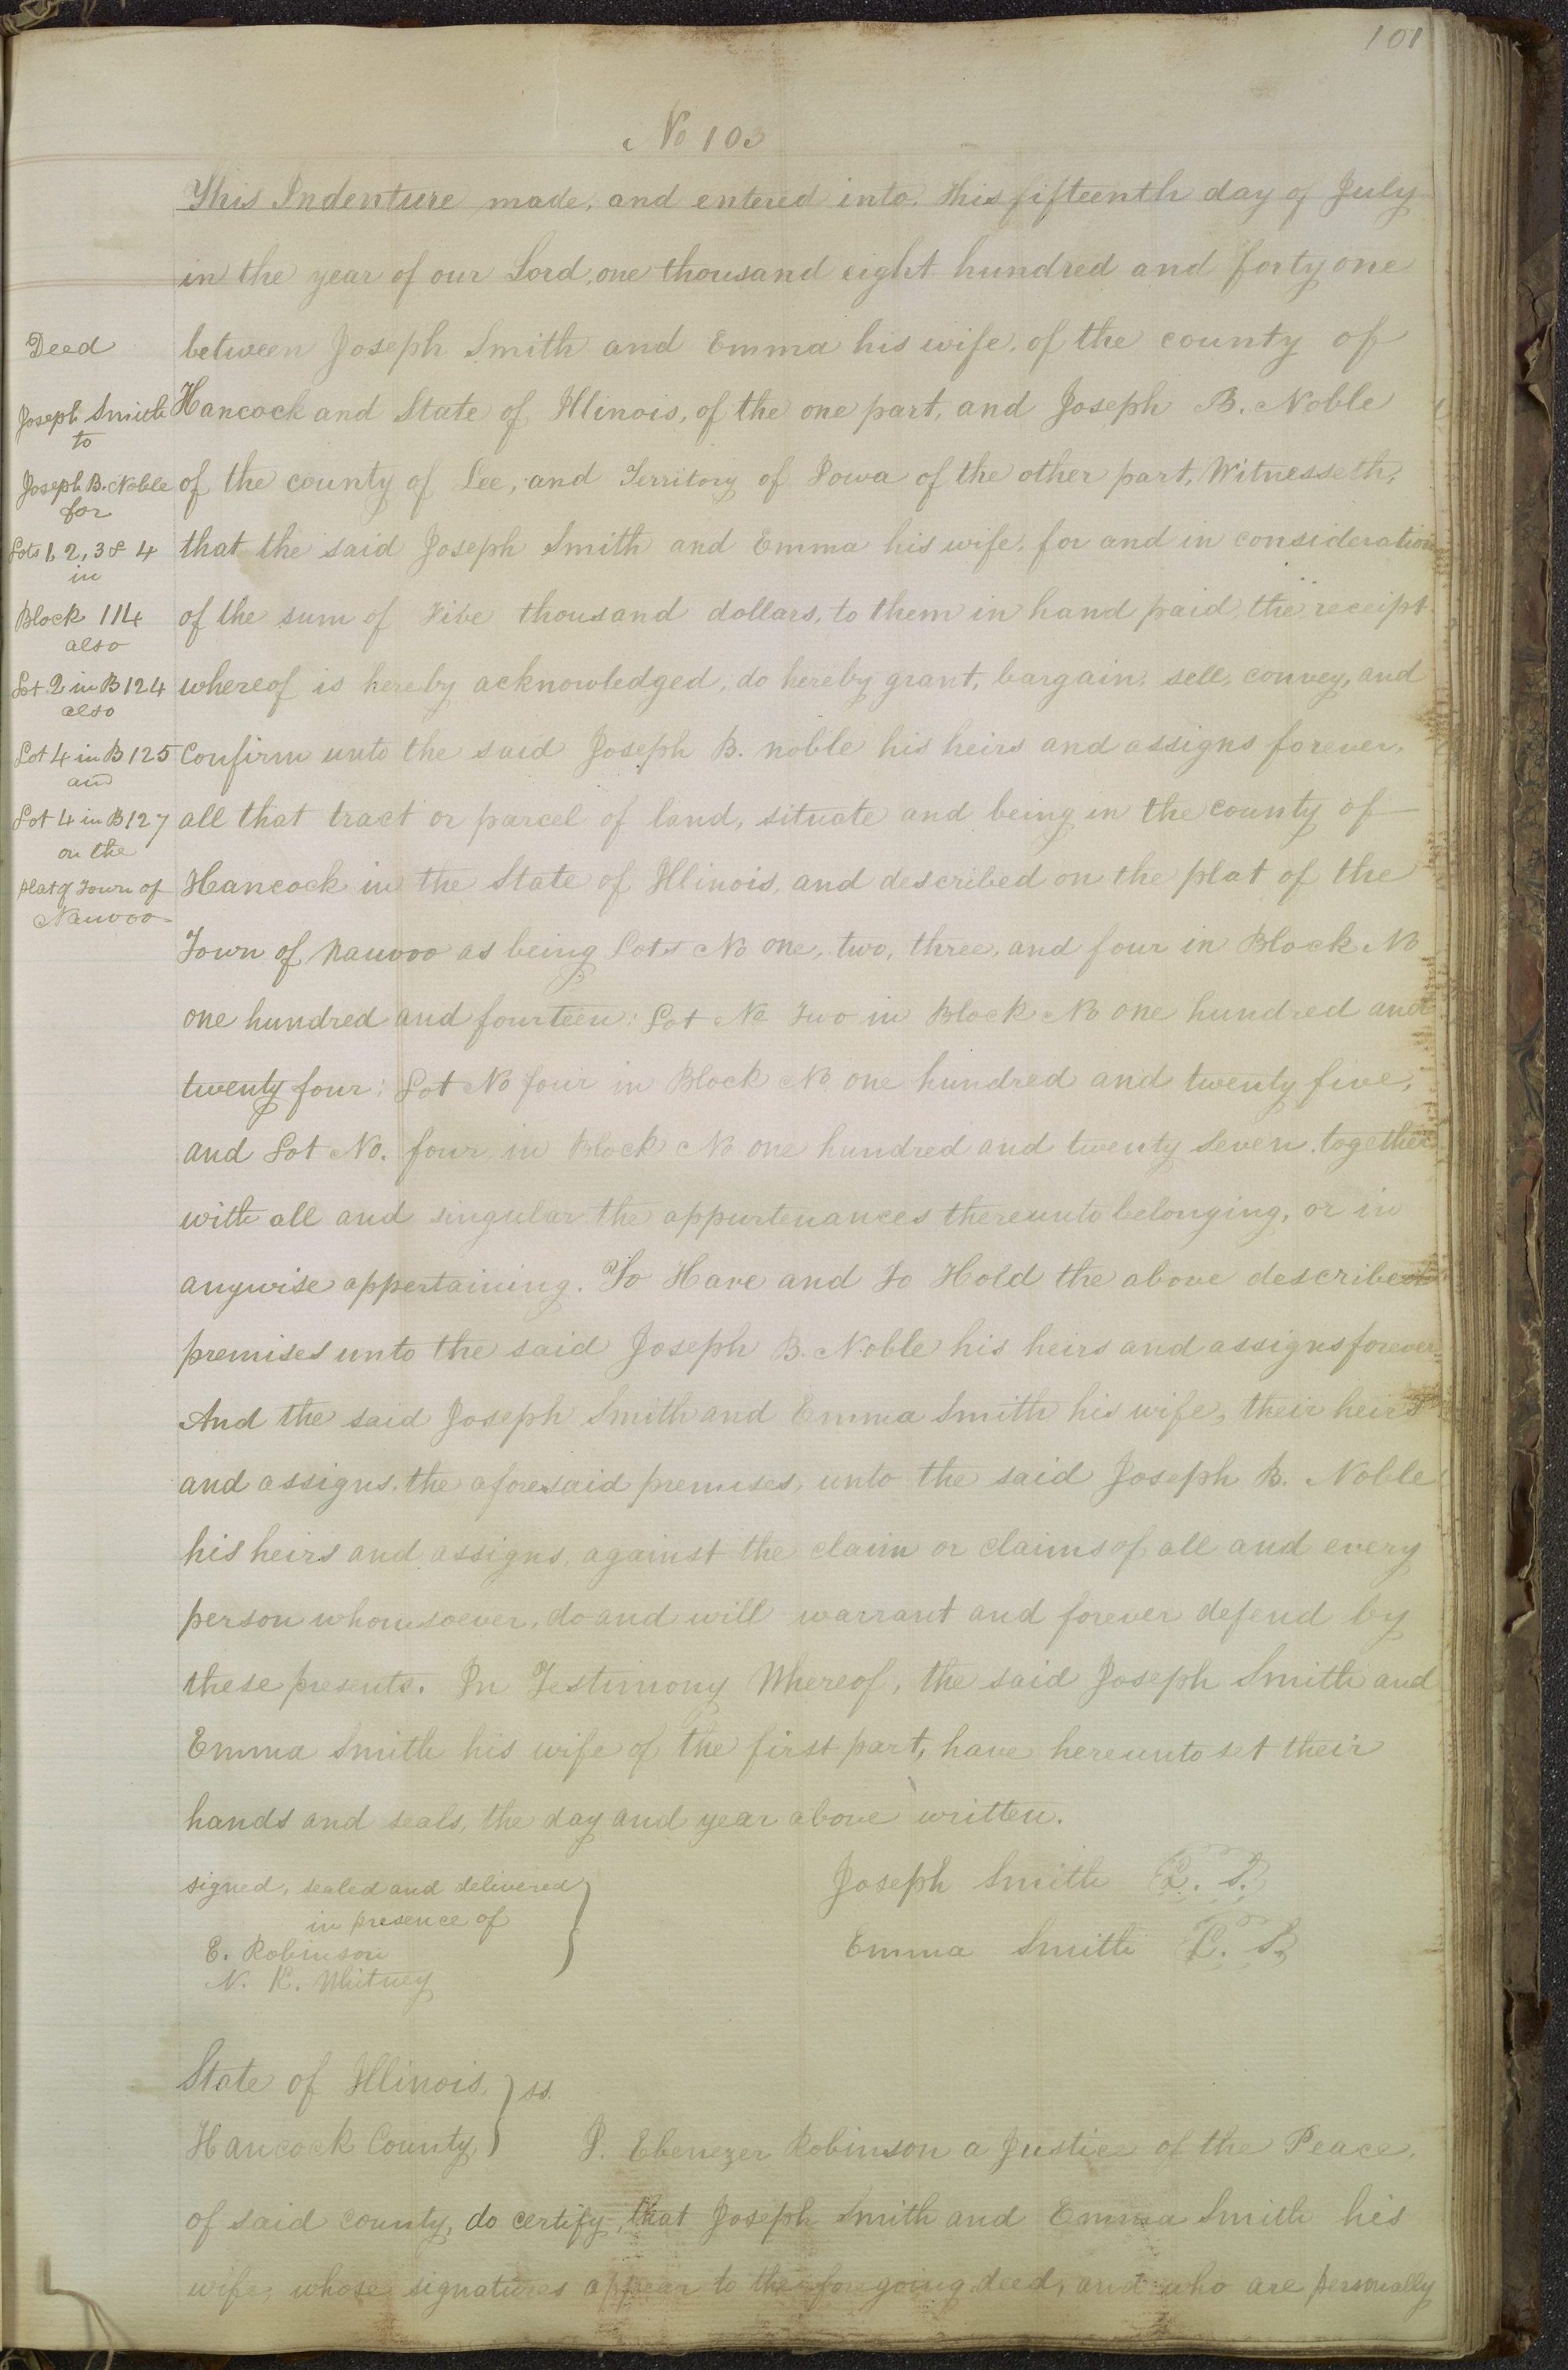 101
No 103
This Indenture made, and entered into, this fifteenth day of July
in the year of our Lord, one thousand eight hundred and forty one
between Joseph Smith and Emma his wife, of the county of
Hancock and State of Illinois, of the one part, and Joseph B. Noble
of the county of Lee, and Territory of Iowa of the other part, Witnesseth,
that the said Joseph Smith and Emma his wife, for and in consideration
of the sum of Five thousand dollars, to them in hand paid, the receipt
whereof is hereby acknowledged, do hereby grant, bargain, sell, convey, and
Confirm unto the said Joseph B. noble his heirs and assigns forever,
all that tract or parcel of land, situate and being in the county of
Hancock in the State of Illinois, and described on the plat of the
Town of Nauvoo as being Lots No one, two, three, and four in Block No
one hundred and fourteen: Lot No Two in Block No one hundred and
twenty four: Lot No four in Block No one hundred and twenty five,
and Lot No. four, in Block No one hundred and twenty seven, together
with all and singular the appurtenances thereunto belonging, or in
anywise appertaining. To Have and To Hold the above described
premises unto the said Joseph B. Noble his heirs and assigns forever.
And the said Joseph Smith and Emma Smith his wife, their heirs
and assigns, the aforesaid premises, unto the said Joseph B. Noble
his heirs and assigns, against the claim or claims of all and every
person whomsoever, do and will warrant and forever defend by
these presents. In Testimony Whereof, the said Joseph Smith and
Emma Smith his wife of the first part, have hereunto set their
hands and seals, the day and year above written.
signed, sealed and delivered
in presence of
E. Robinson
N. K. Whitney
Joseph Smith L. S.
Emma Smith L. S.
State of Illinois, } ss.
Hancock County, } I. Ebenezer Robinson a Justice of the Peace,
of said county, do certify, that Joseph Smith and Emma Smith his
wife, whose signatures appear to the foregoing deed, and who are personally
Deed
Joseph Smith
to
Joseph B. Noble
for
Lots 1, 2, 3 & 4
in
Block 114
also
Lot 2 in B 124
also
Lot 4 in B 125
and
Lot 4 in B 127
on the
plat of Town of
Nauvoo